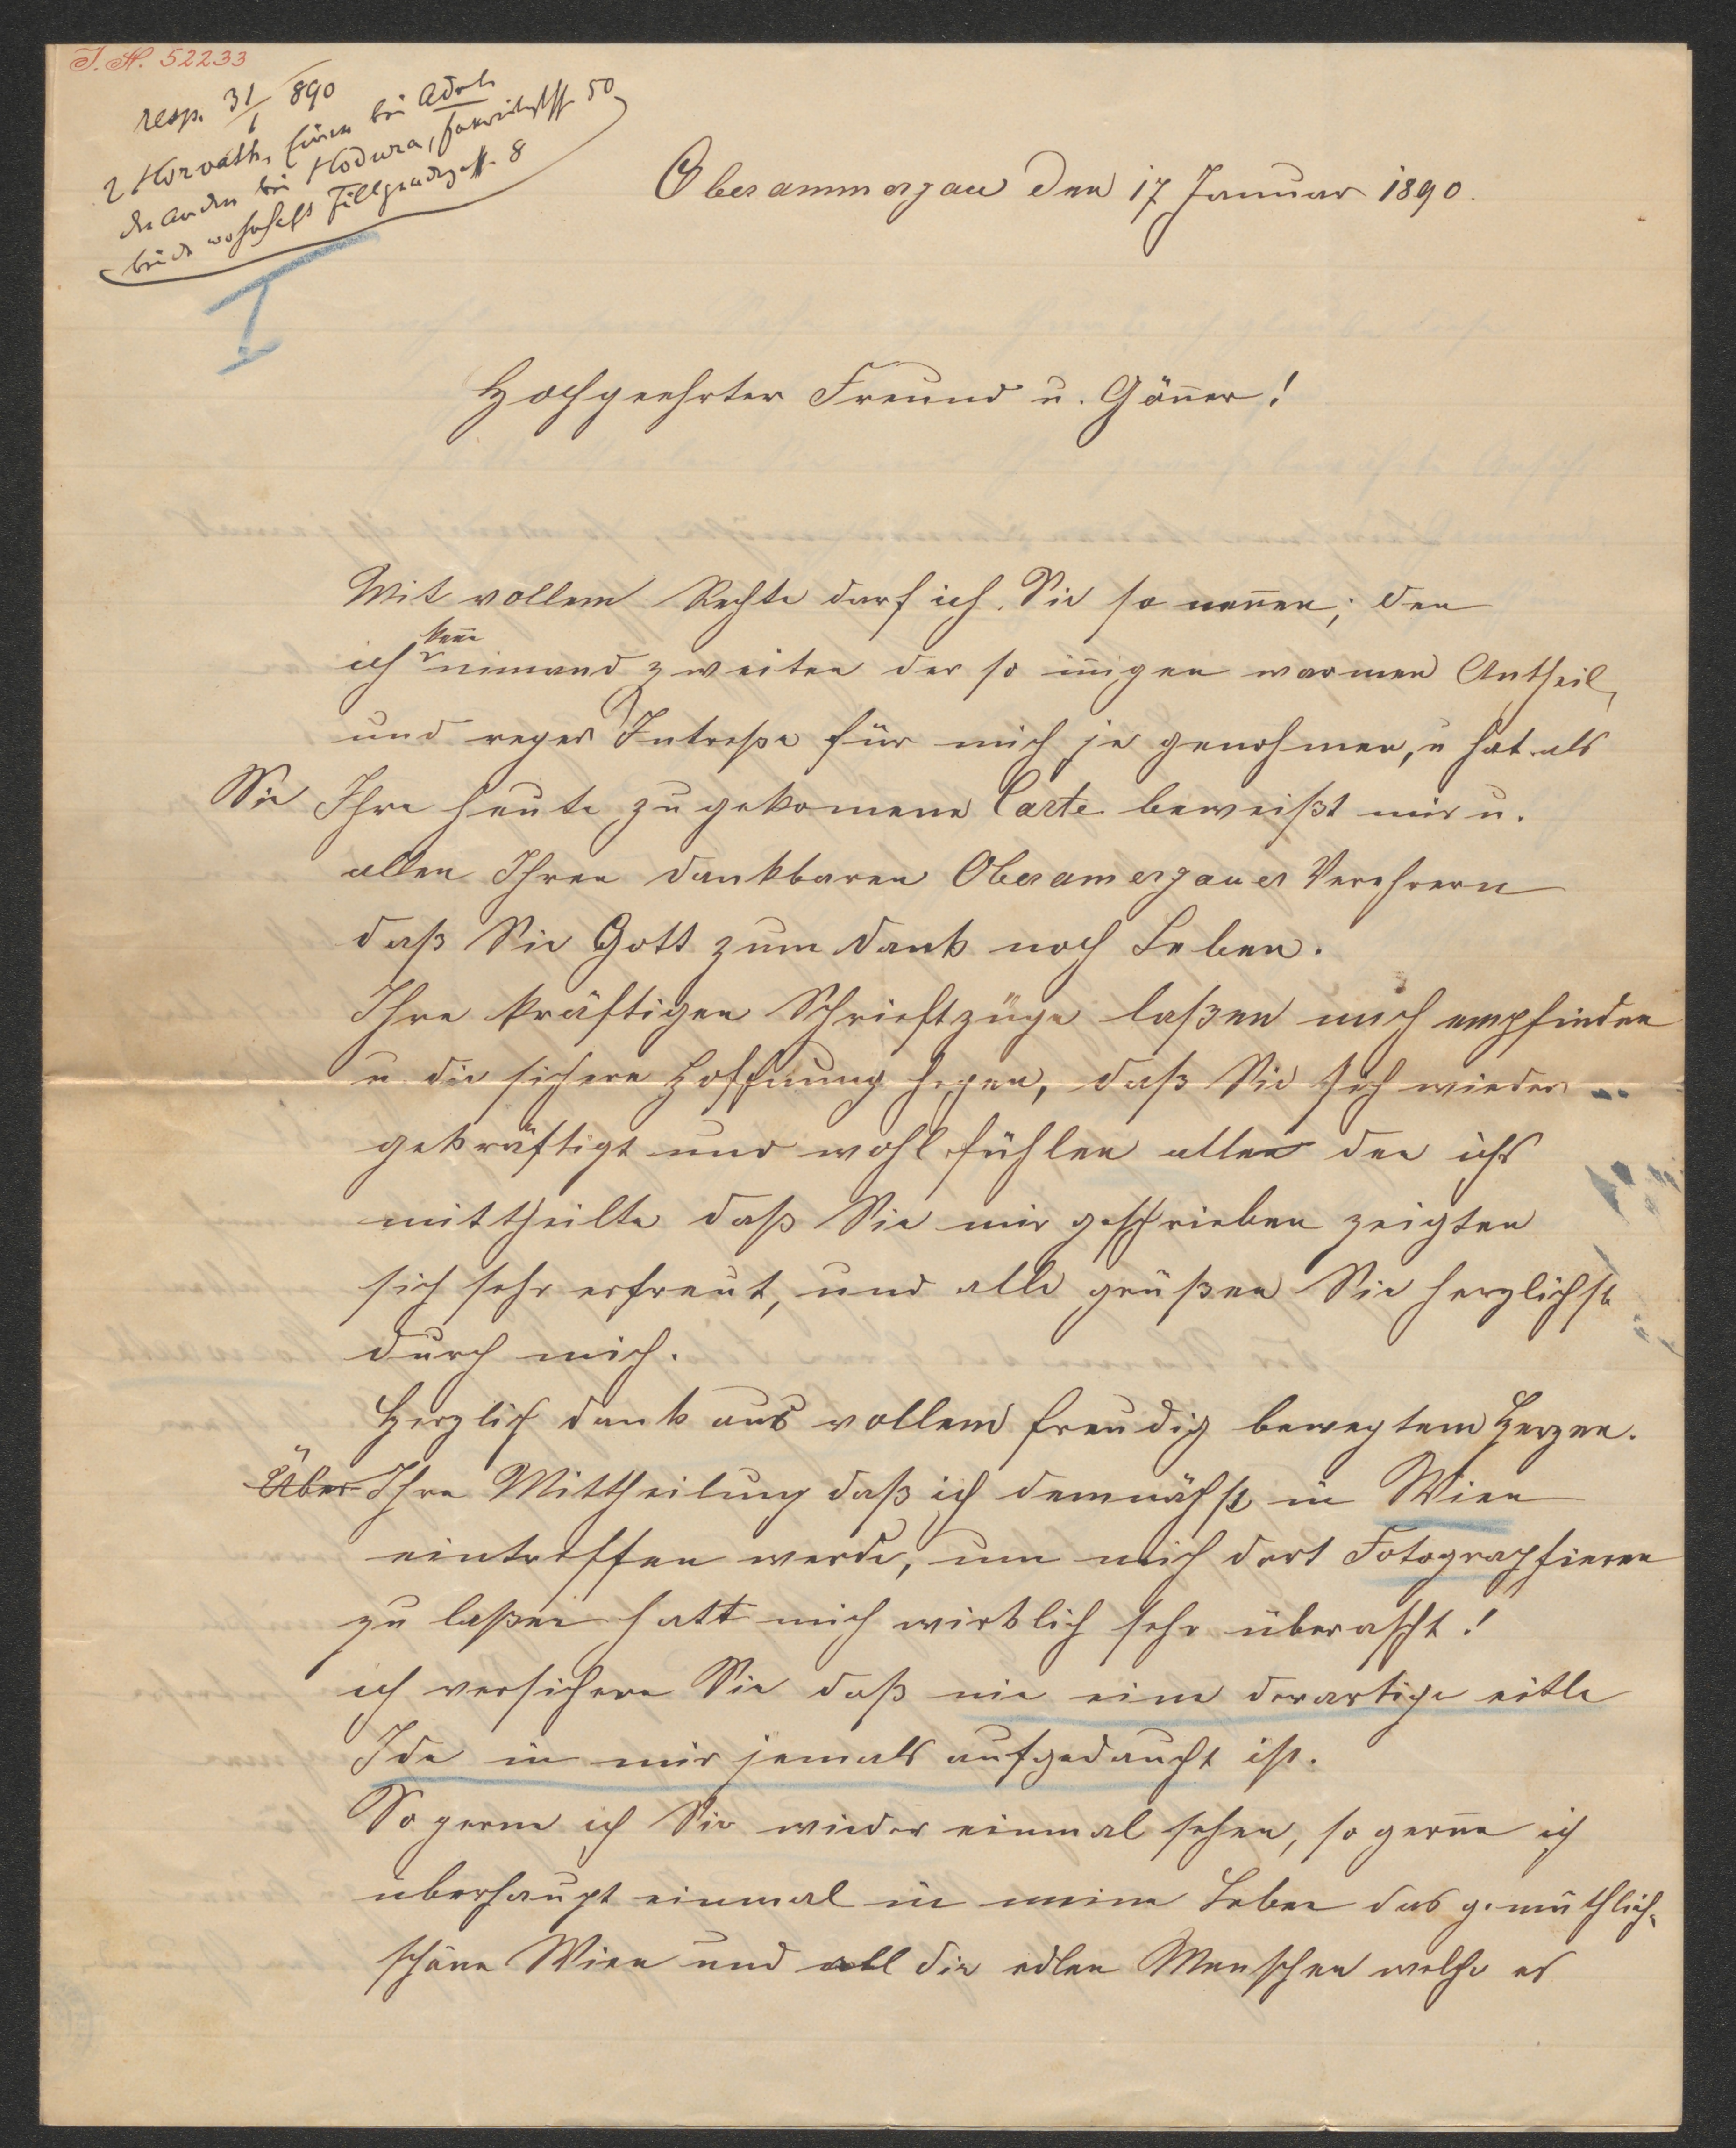 I. N. 52233
resp. 31/1 890
2 Horvath, einer bei Adele
der andre bei Hodura, 50
beide wohnhaft Fillgradergss. 8
I
Oberammergau den 17 Januar 1890.
Hochgeehrter Freund u. Göñer!
Mit vollem Rechte darf ich Sie so neñen; den
keñe
ich nimand zweiten der so iñigen warmen Antheil,
und reges Intreße für mich je genohmen, u hat als
Sie Ihre heute zugekomene Carte beweißt mir u.
allen Ihren dankbaren Oberamergauer Verehrern
daß Sie Gott zum dank noch Leben.
Ihre kräftigen Schrieftzüge laßen mich empfinden
u die sichere Hoffnung hegen, daß Sie sich wieder
gekräftigt und wohl fühlen allen den ichs
mittheilte daß Sie mir geschrieben zeigten
sich sehr erfreut, und alle grüßen Sie herzlichst
durch mich.
Herzlich dank aus vollem freudig bewegtem Herzen.
Über Ihre Mittheilung daß ich demnächst in Wien
eintreffen werde, um mich dort Fotographieren
zu laßen hatt mich wirklich sehr überascht!
ich versichere Sie daß nie eine derartige eitle
Ide in mir jemals aufgedaucht ist.
So gerne ich Sie wieder einmal sehen, so gerñe ich
überhaupt einmal in meine Leben das gemüthlich-
schöne Wien und all die edlen Menschen welche es